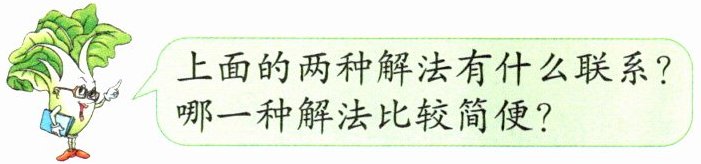 上面的两种解法有什么联系？
哪一种解法比较简便？